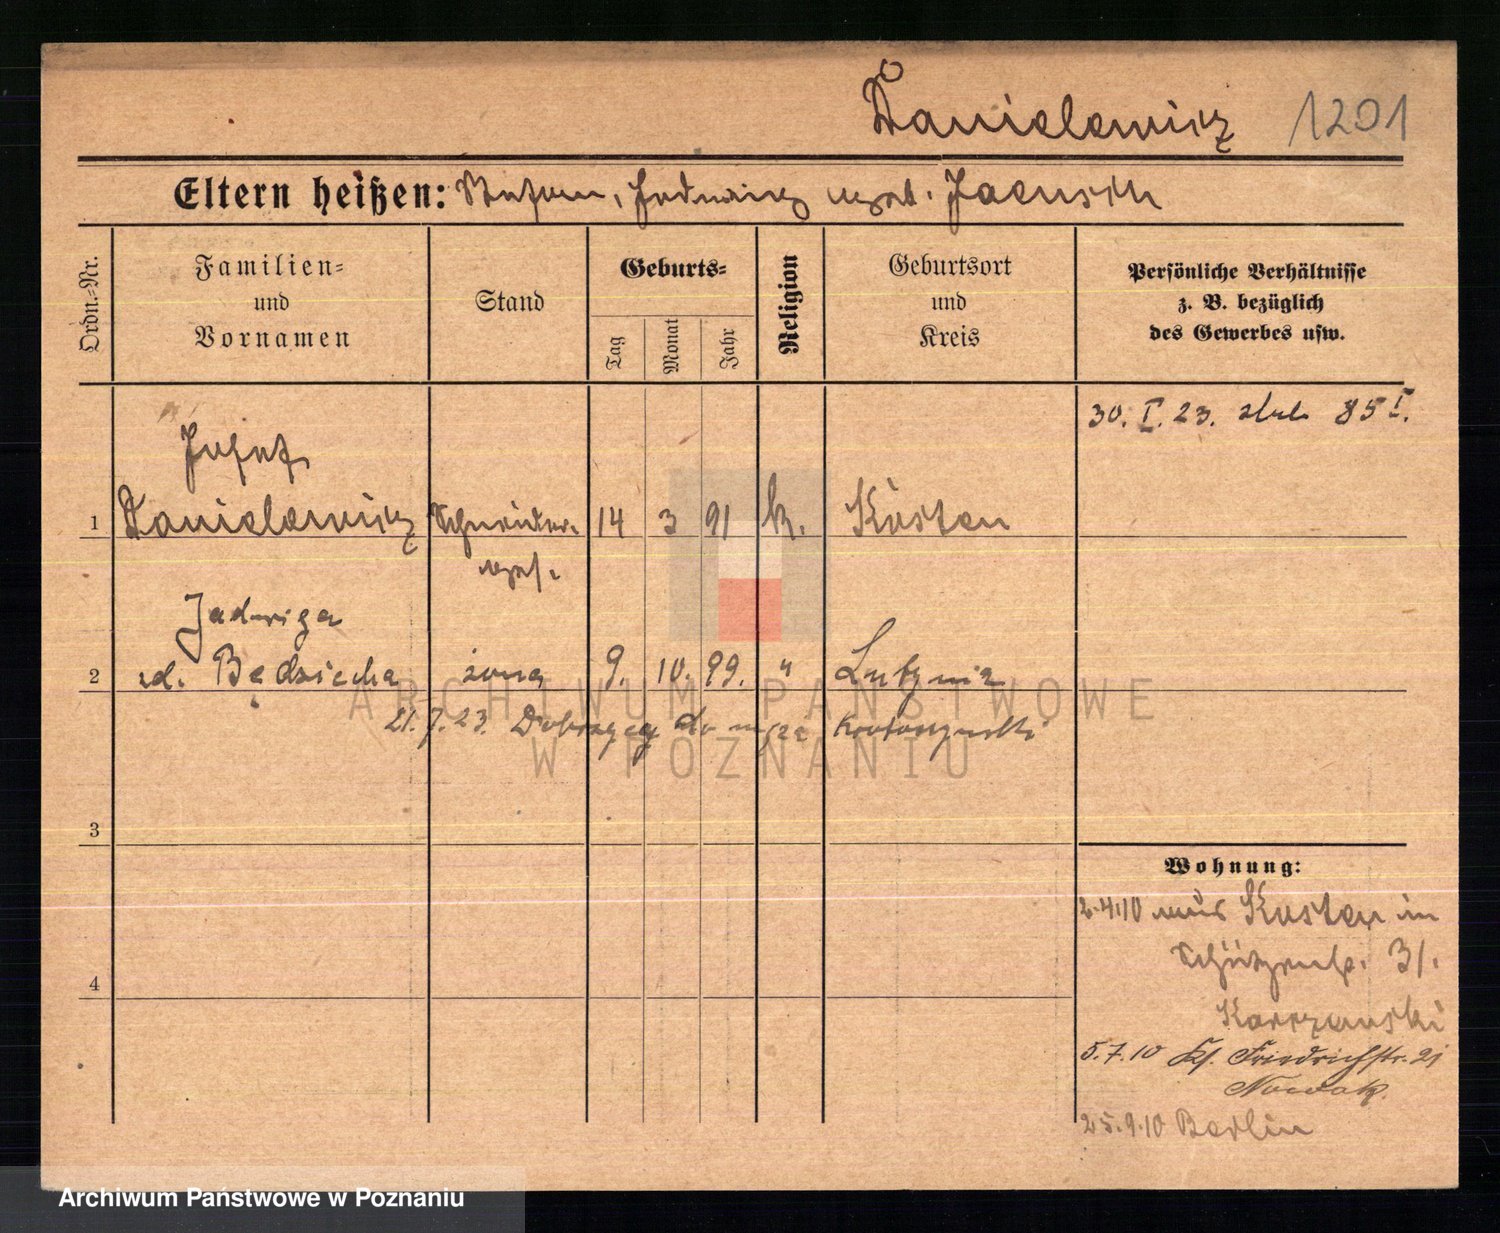 Danielewicz 1201
Eltern heißen: Stefan, Hedwig geb. Jaensch
Ordn.-Nr.
Familien-
und
Vornamen
Stand
Geburts-
Tag
Monat
Jahr
Religion
Geburtsort
und
Kreis
Persönliche Verhältnisse
z. B. bezüglich
des Gewerbes usw.
30. I. 23. 85 I.
Josef
1 Danielewicz Schneider- 14 3 91 k. Kosten
ges.
Jadwiga
2 zd. Będziecha żona 9. 10. 99. " Lutynia
21. 7. 23. Dobrzycy do krotoszyński
3
Wohnung:
2.4.10 aus Kosten in
Schützenstr. 31.
4
Karczewski
5.7.10 Kl. Friedrichstr. 21
Nowak.
25.9.10 Berlin
ARCHIWUM PAŃSTWOWE
W POZNANIU
Archiwum Państwowe w Poznaniu